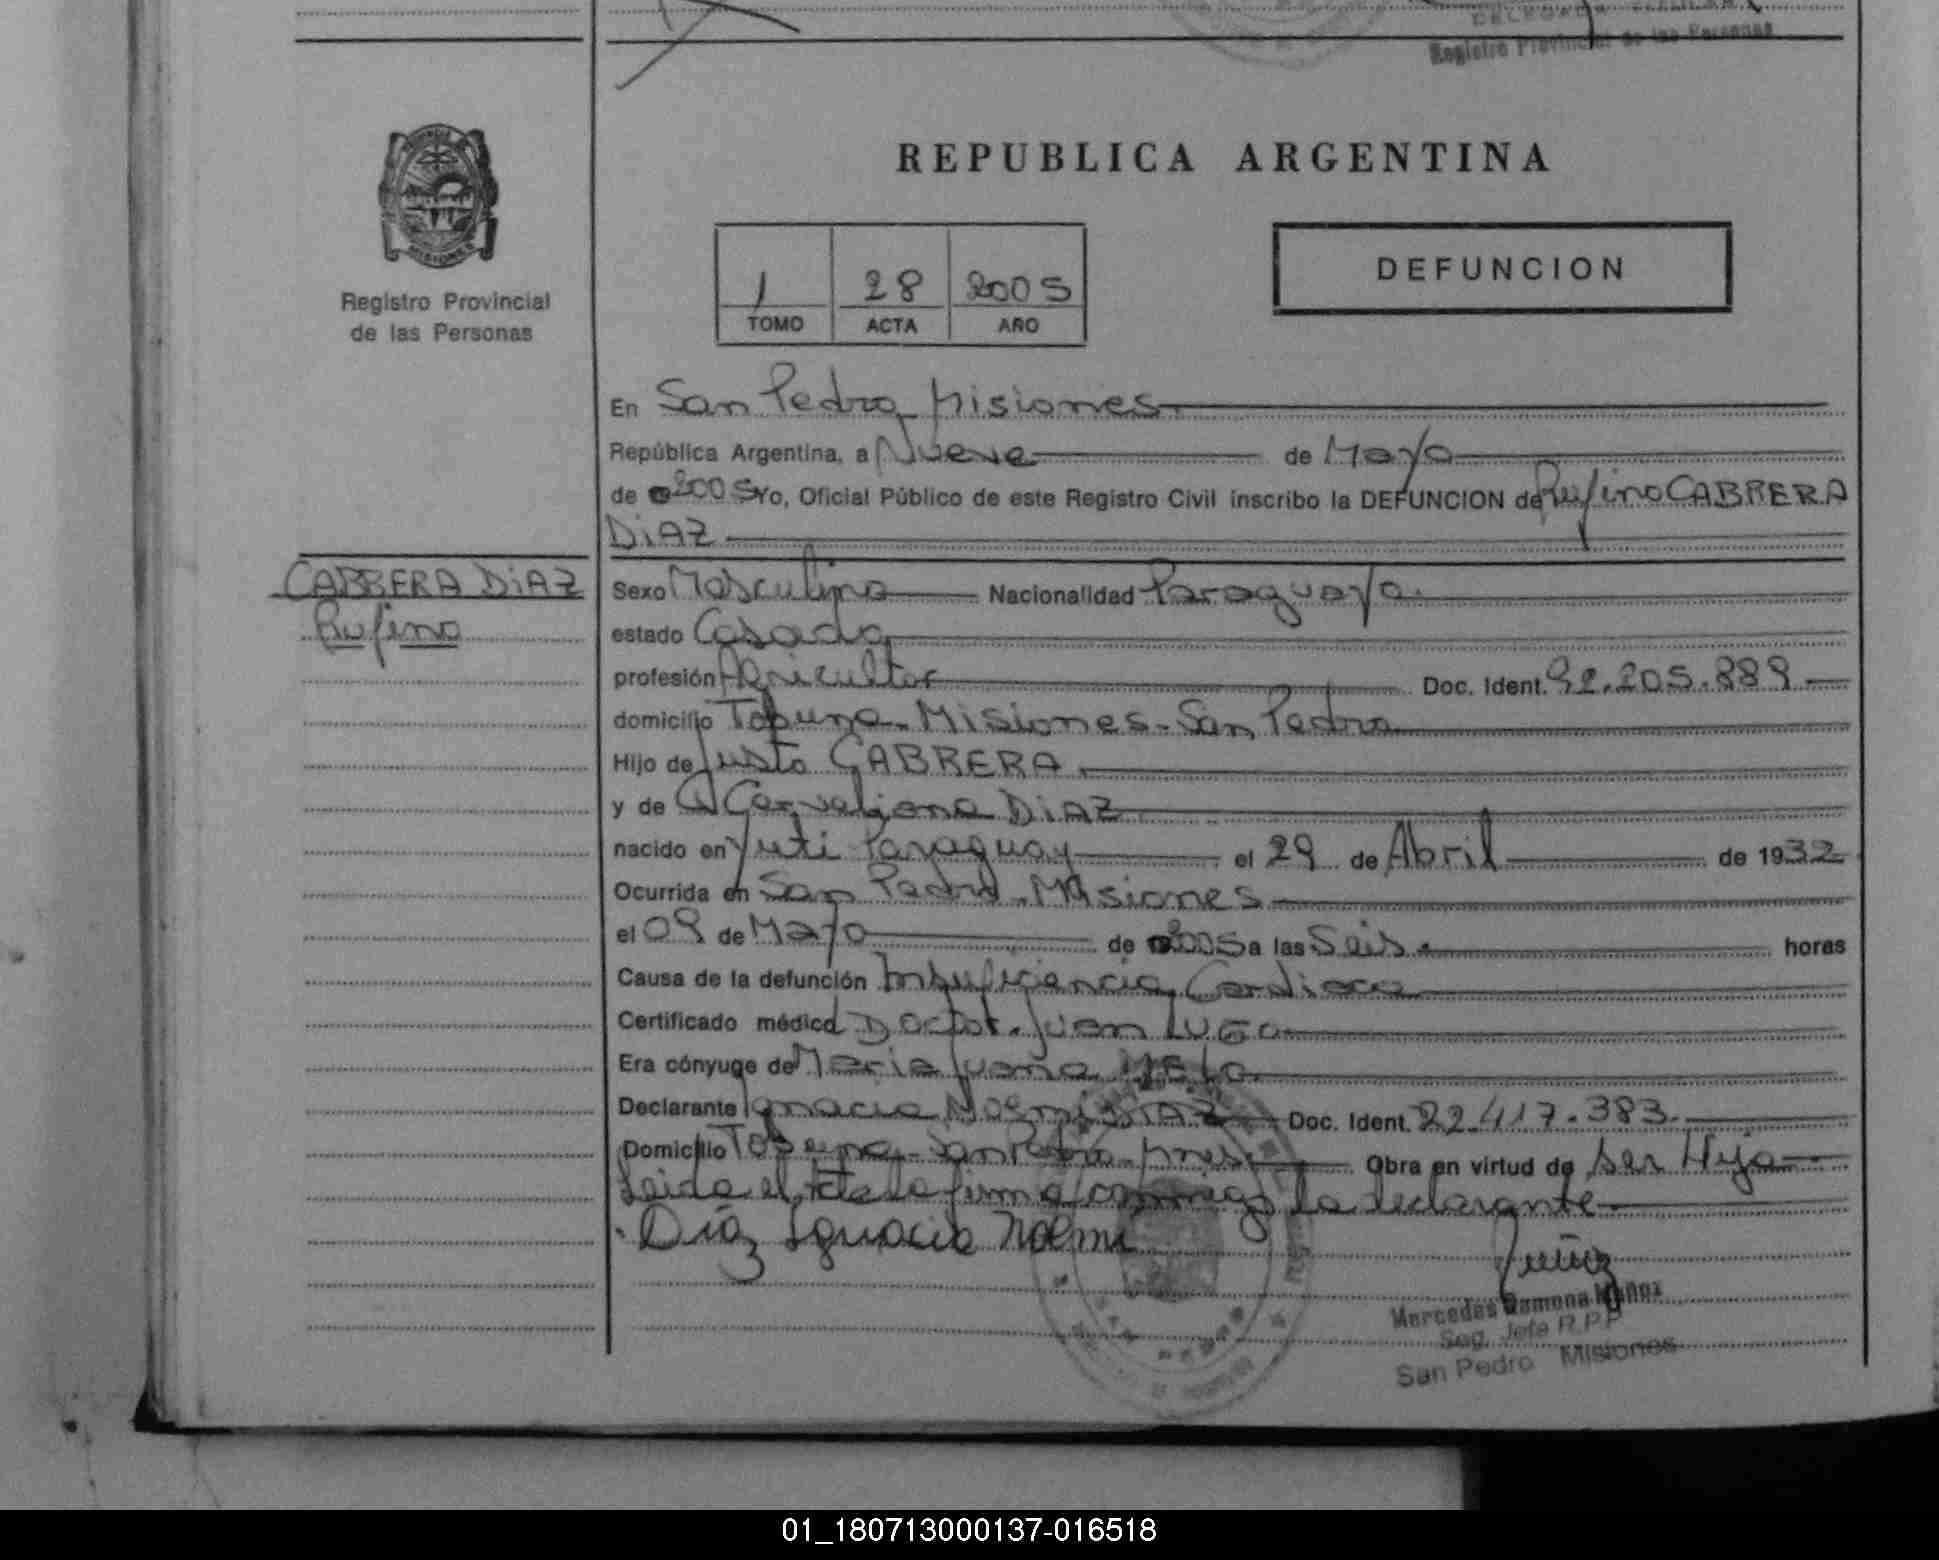 Registro Provincial de las Personas
REPUBLICA ARGENTINA
Registro Provincial
de las Personas
1 28 2005
TOMO ACTA AÑO
DEFUNCION
En San Pedro Misiones
República Argentina, a Nueve de Mayo
de 2005 Yo, Oficial Público de este Registro Civil inscribo la DEFUNCION de Rufino CABRERA
DIAZ
CABRERA DIAZ
Rufino
Sexo Masculino Nacionalidad Paraguaya.
estado Casado
profesión Agricultor Doc. Ident. 92.205.889
domicilio Tobuna - Misiones - San Pedro
Hijo de Justo CABRERA
y de DIAZ
nacido en Yuti Paraguay el 29 de Abril de 1932
Ocurrida en San Pedro - Misiones
el 09 de Mayo de 2005 a las Seis. horas
Causa de la defunción Insuficiencia Cardiaca
Certificado médico Doctor. Juan LUGO
Era cónyuge de Maria Juana
Declarante Ignacia Noemi DIAZ Doc. Ident. 22.417.383.
Domicilio Tobuna - San Pedro - Mnes. Obra en virtud de ser Hija
Leida el Acta la firma conmigo la declarante
Diaz Ignacia Noemi
Mercedes Ramona Muñoz
Seg. Jefe R.P.P
San Pedro Misiones
01_180713000137-016518